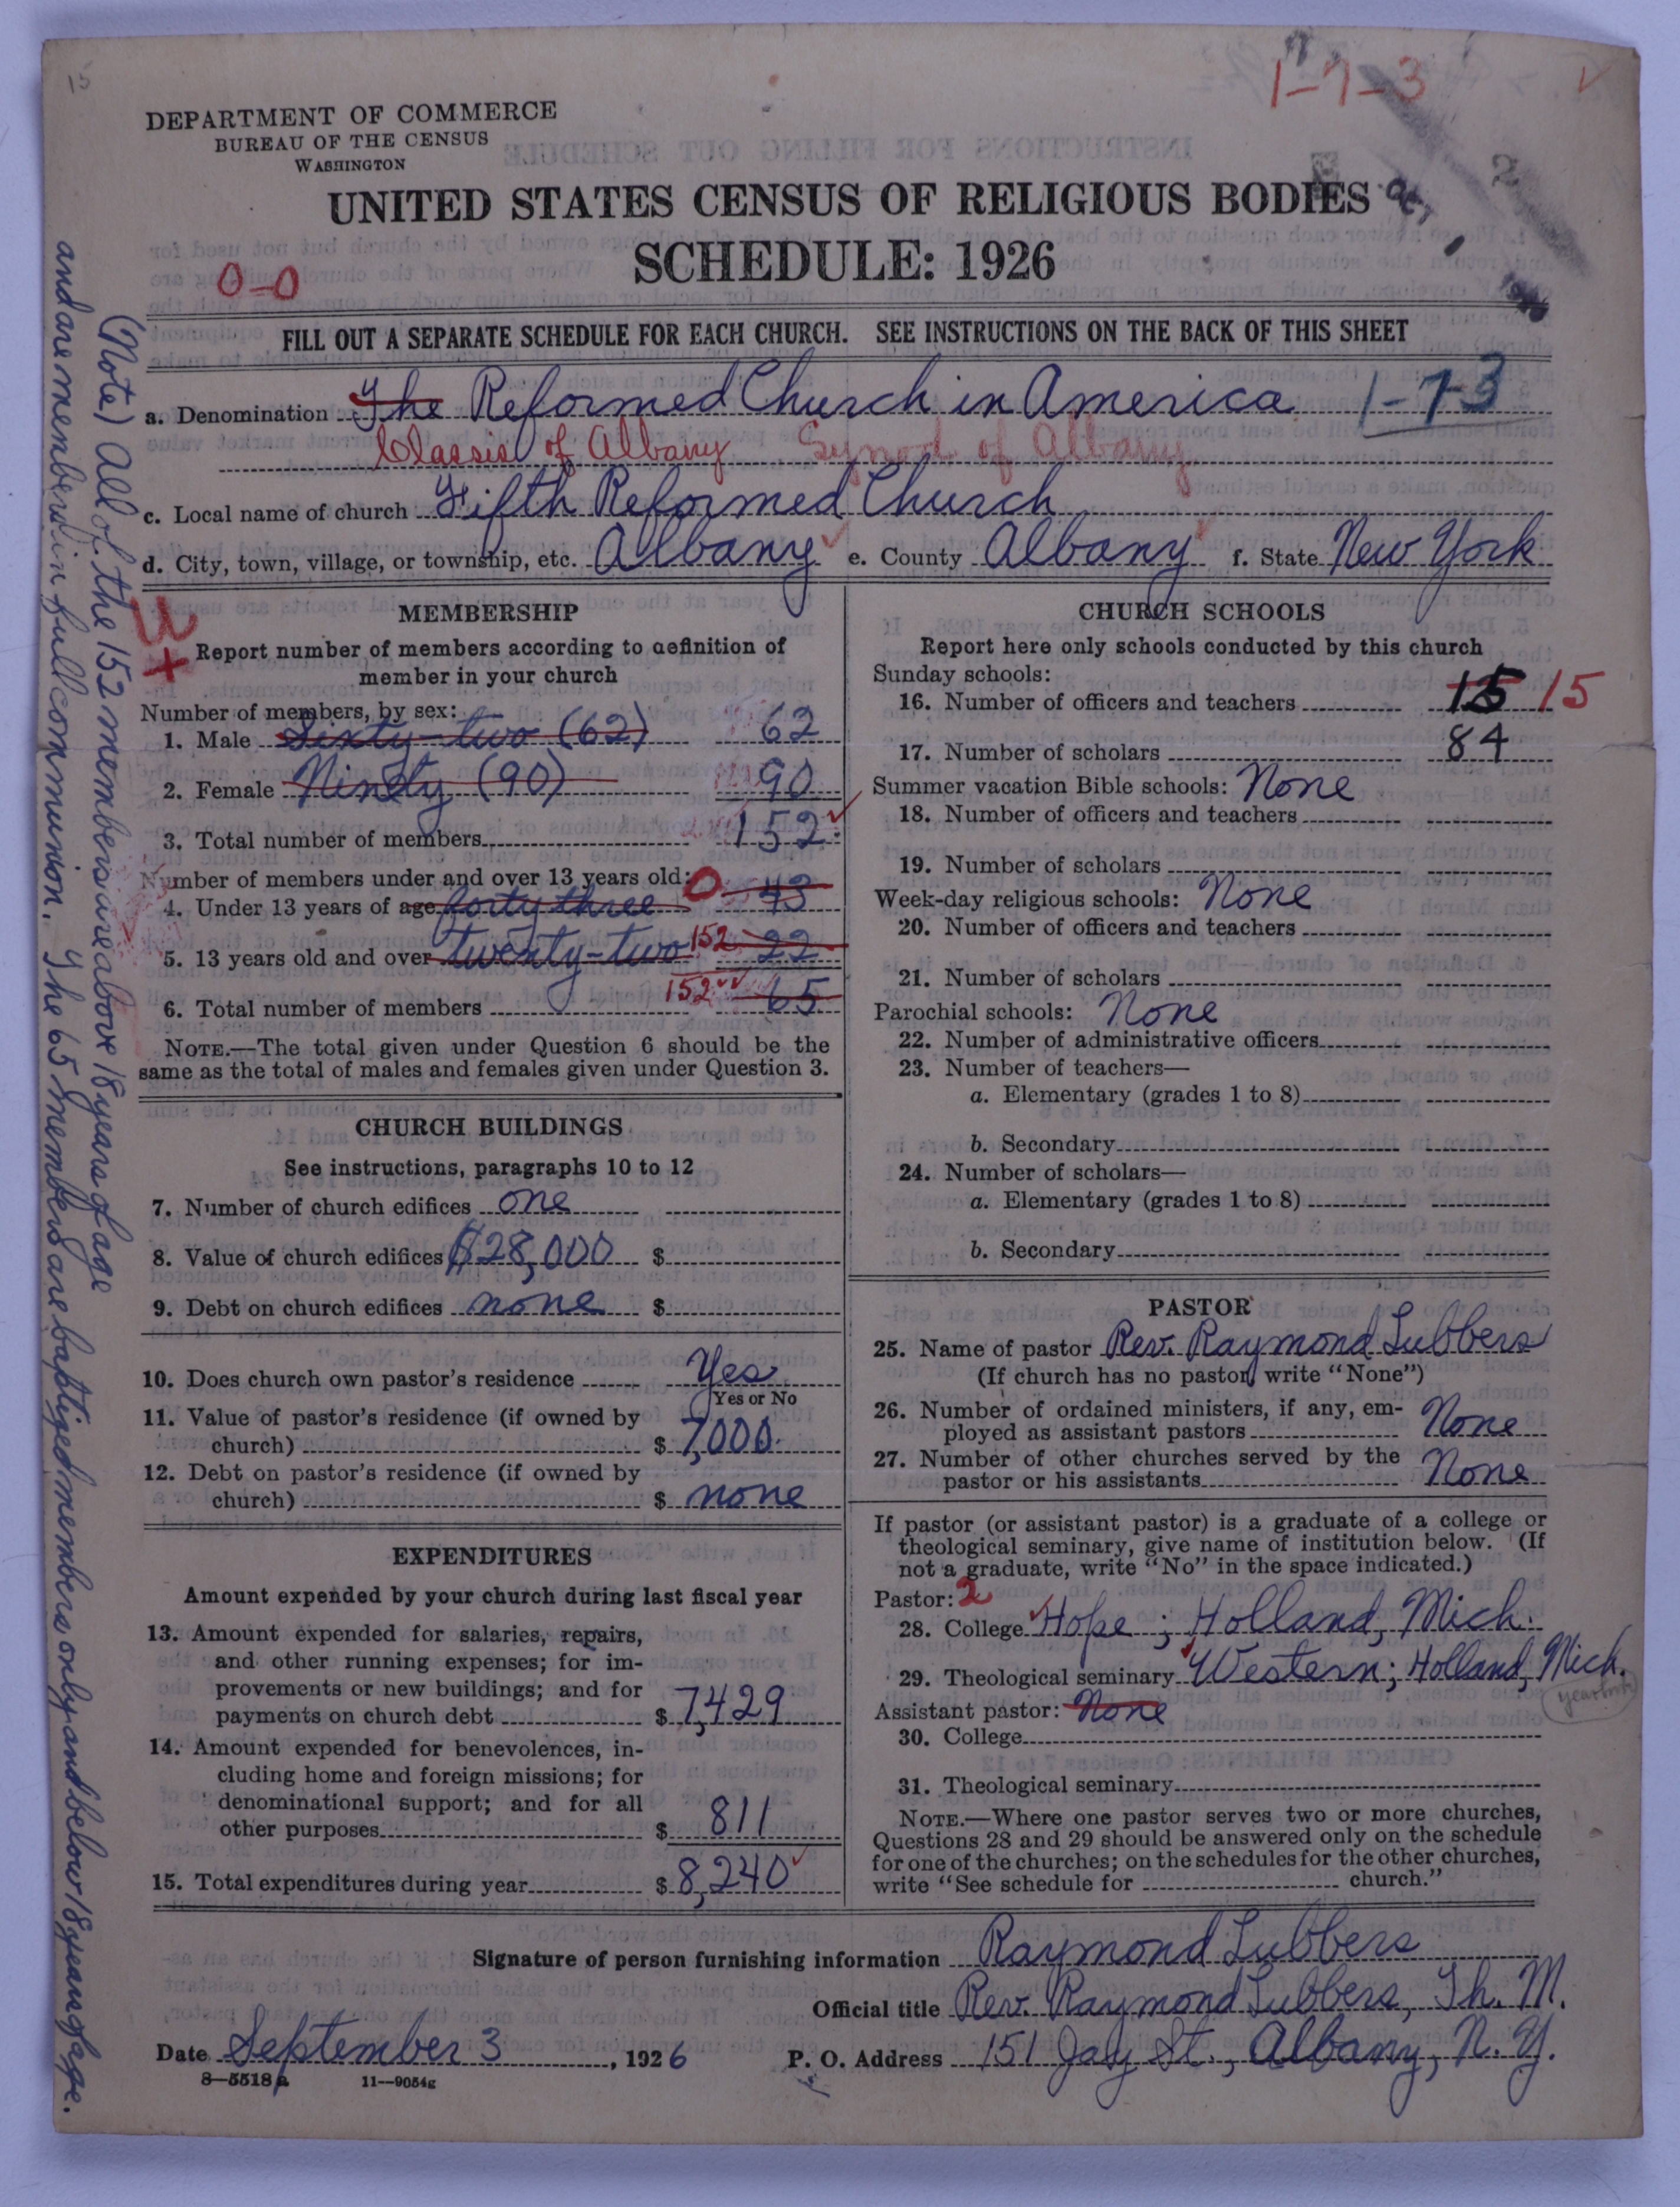 15
1-7-3
DEPARTMENT OF COMMERCE
BUREAU OF THE CENSUS
WASHINGTON
UNITED STATES CENSUS OF RELIGIOUS BODIES
OCT 1 1926
SCHEDULE: 1926
0-0
FILL OUT A SEPARATE SCHEDULE FOR EACH CHURCH. SEE INSTRUCTIONS ON THE BACK OF THIS SHEET
a. Denomination The Reformed Church in America 1-7-3
Classis of Albany Synod of Albany
c. Local name of church Fifth Reformed Church
d. City, town, village, or township, etc. Albany e. County Albany f. State New York
U
+
MEMBERSHIP
Report number of members according to definition of
member in your church
Number of members, by sex:
1. Male Sixty-two (62) 62
2. Female Ninety (90) 90
3. Total number of members 152
Number of members under and over 13 years old:
4. Under 13 years of age forty three 0 43
5. 13 years old and over twenty-two 152 22
6. Total number of members 152 65
NOTE.—The total given under Question 6 should be the
same as the total of males and females given under Question 3.
CHURCH BUILDINGS
See instructions, paragraphs 10 to 12
7. Number of church edifices one
8. Value of church edifices $28,000 $
9. Debt on church edifices none $
10. Does church own pastor's residence Yes
Yes or No
11. Value of pastor's residence (if owned by
church) $ 7,000.
12. Debt on pastor's residence (if owned by
church) $ none
EXPENDITURES
Amount expended by your church during last fiscal year
13. Amount expended for salaries, repairs,
and other running expenses; for im-
provements or new buildings; and for
payments on church debt $ 7,429
14. Amount expended for benevolences, in-
cluding home and foreign missions; for
denominational support; and for all
other purposes $ 811
15. Total expenditures during year $ 8,240
CHURCH SCHOOLS
Report here only schools conducted by this church
Sunday schools:
16. Number of officers and teachers 15 15
17. Number of scholars 84
Summer vacation Bible schools: None
18. Number of officers and teachers
19. Number of scholars
Week-day religious schools: None
20. Number of officers and teachers
21. Number of scholars
Parochial schools: None
22. Number of administrative officers
23. Number of teachers—
a. Elementary (grades 1 to 8)
b. Secondary
24. Number of scholars—
a. Elementary (grades 1 to 8)
b. Secondary
PASTOR
25. Name of pastor Rev. Raymond Lubbers
(If church has no pastor, write "None")
26. Number of ordained ministers, if any, em-
ployed as assistant pastors None
27. Number of other churches served by the
pastor or his assistants None
If pastor (or assistant pastor) is a graduate of a college or
theological seminary, give name of institution below. (If
not a graduate, write "No" in the space indicated.)
Pastor: 2
28. College Hope; Holland, Mich.
29. Theological seminary Western; Holland, Mich.
yearbook
Assistant pastor: None
30. College
31. Theological seminary
NOTE.—Where one pastor serves two or more churches,
Questions 28 and 29 should be answered only on the schedule
for one of the churches; on the schedules for the other churches,
write "See schedule for church."
Signature of person furnishing information Raymond Lubbers
Official title Rev. Raymond Lubbers, Th. M.
Date September 3, 1926 P. O. Address 151 Jay St., Albany, N. Y.
8-5518a 11-9054g
(Note) All of the 152 members are above 18 years of age
and are members in full communion. The 65 members are baptized members only and below 18 years of age.